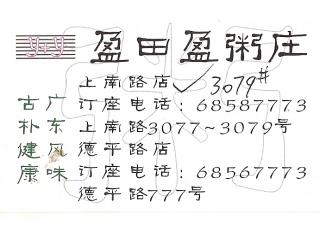 y+y
盈田盈粥庄
上南路店 ✓ 3079#
订座电话：68587773
上南路3077~3079号
德平路店
订座电话：68567773
德平路777号
古朴健康
广东风味